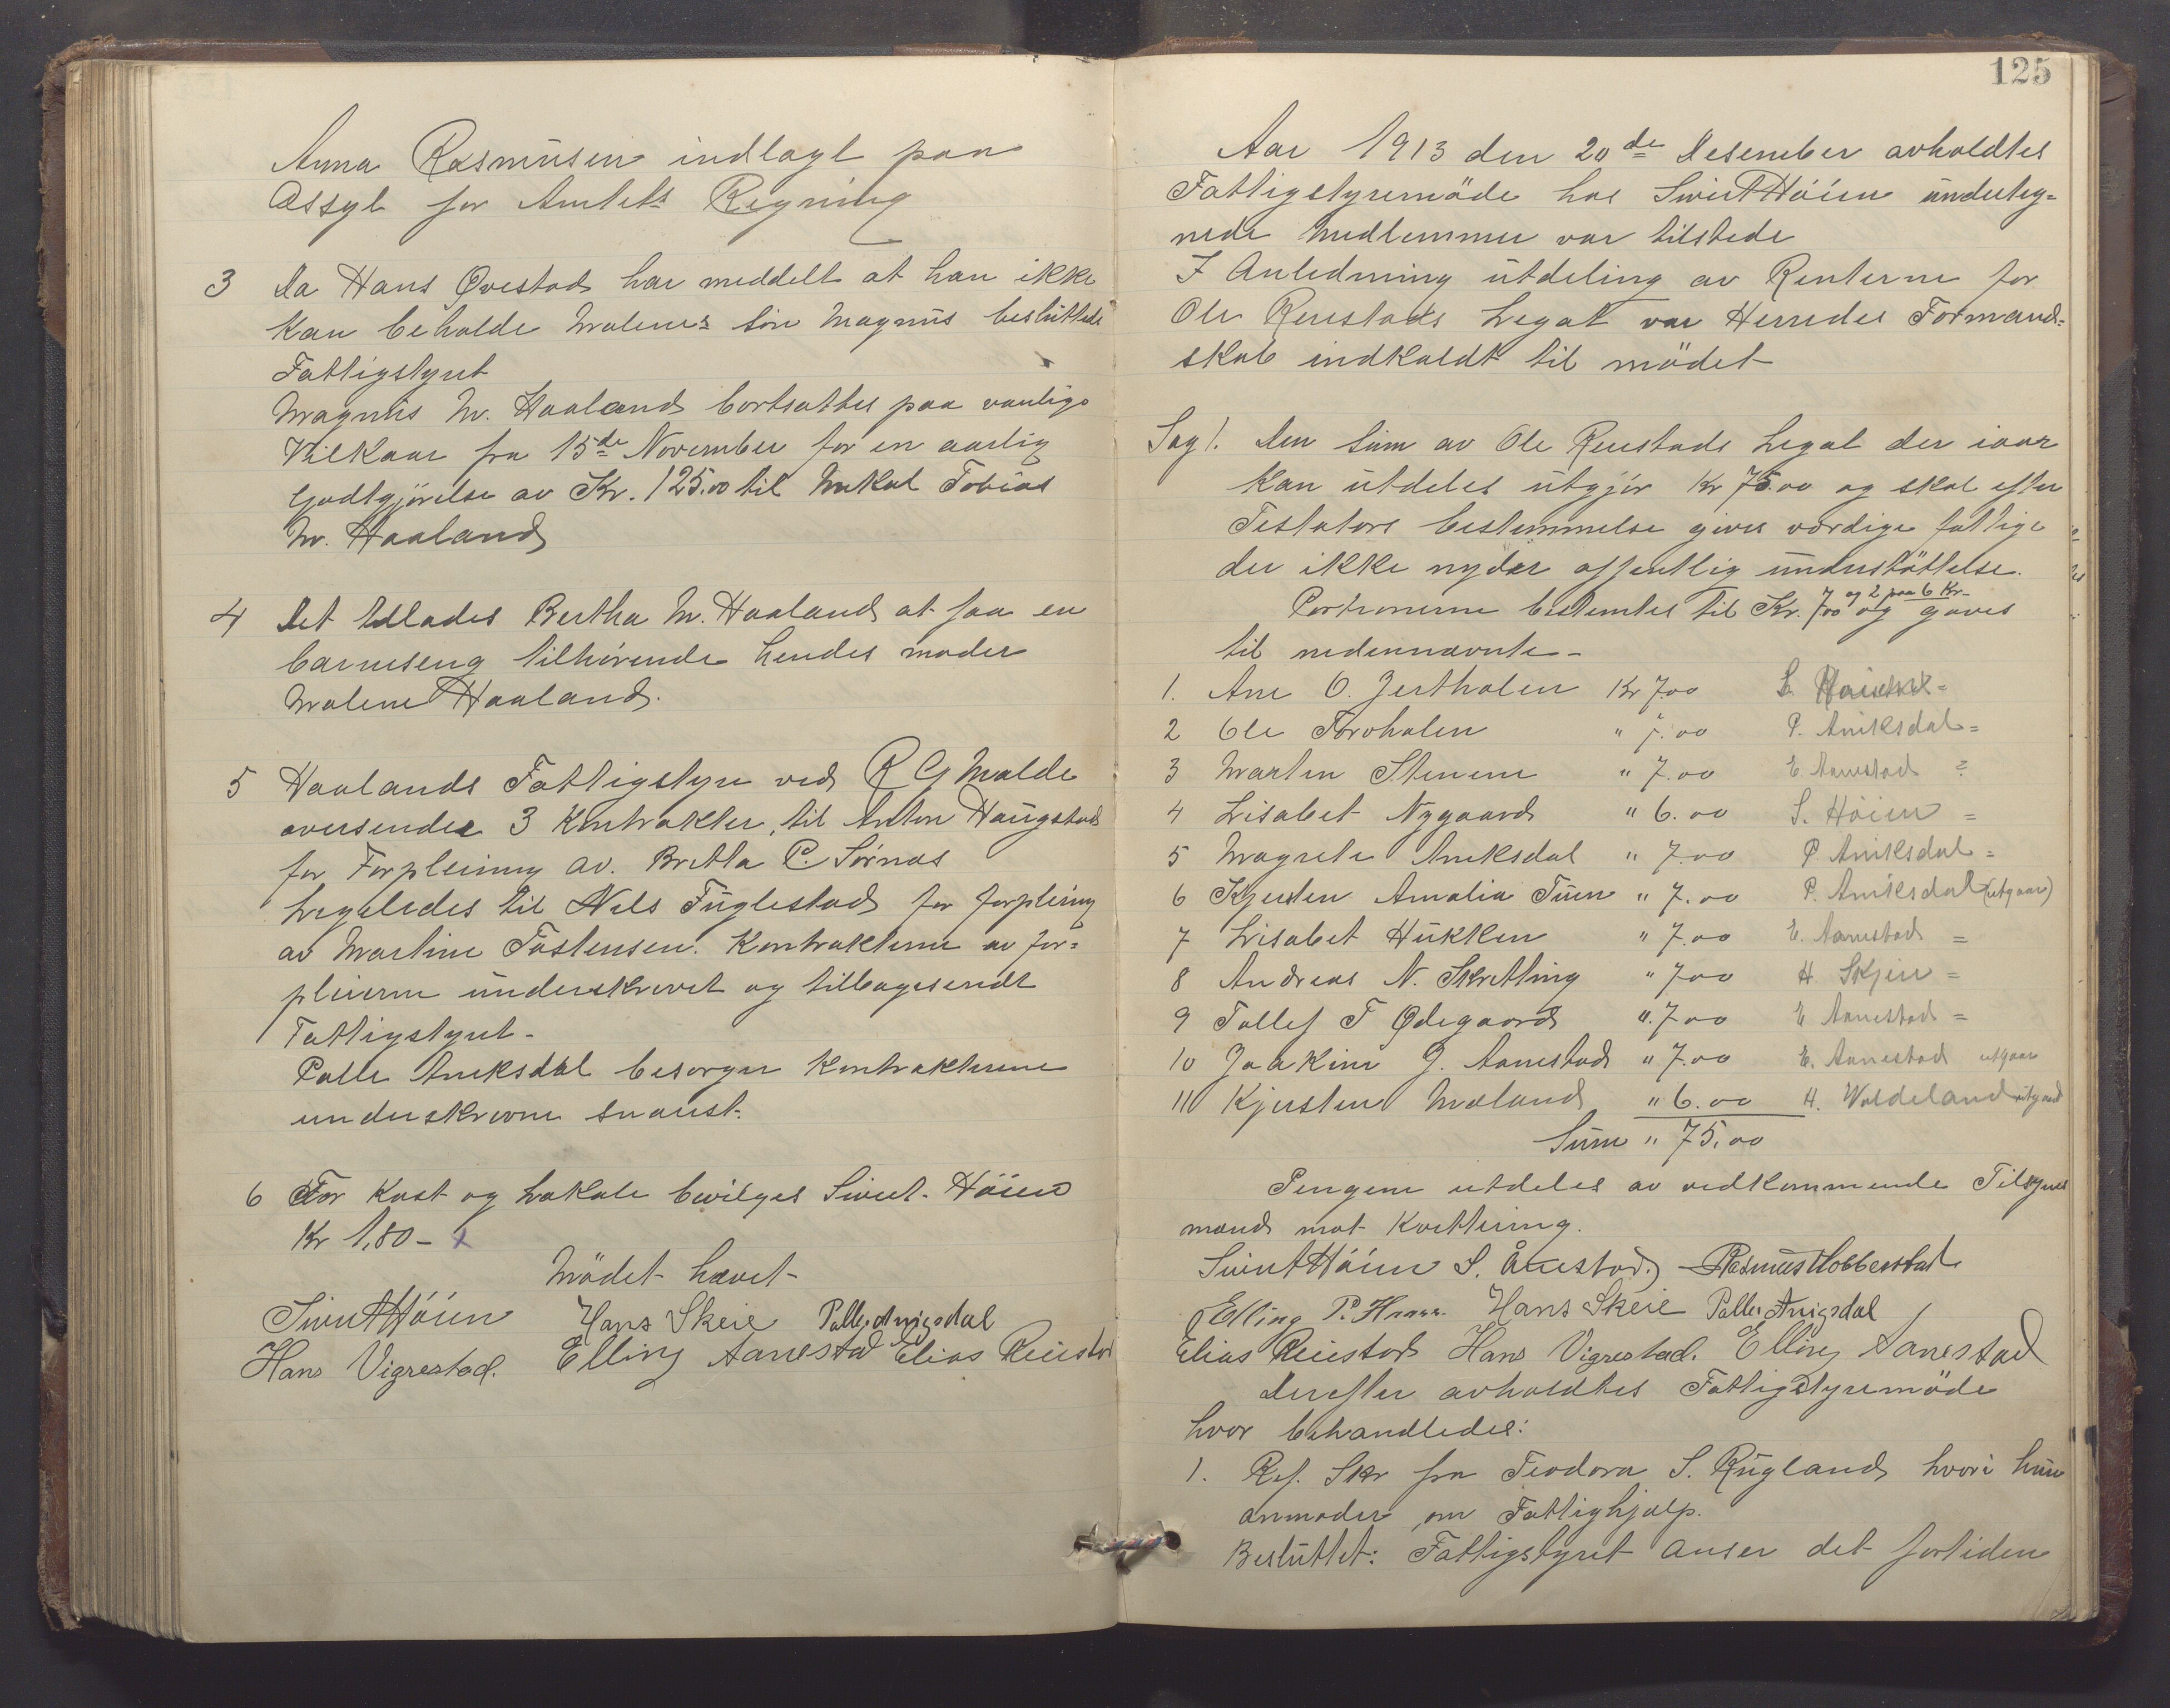 Anna Rasmusen indlagt paa
Assyl for Amtets Regning
3 Da Hans Øvestad har meddelt at han ikke
kan beholde Malenes søn Magnus besluttede
Fattigstyret
Magnus M. Haaland bortsattes paa vanlige
Vilkaar fra 15de November for en aarlig
Godtgjørelse av Kr. 125.00 til Mikal Tobias
M. Haaland
4 Det tillades Bertha M. Haaland at faa en
barneseng tilhørende hendes moder
Malene Haaland.
5 Haalands Fattigstyre ved R G Malde
oversender 3 Kontrakter, til Anton Haugstad
for Forpleining av. Britta P. Sørnas
Ligeledes til Nils Fuglestad for forpleining
av Martine Tostensen. Kontrakterne av for=
pleierne underskrevet og tilbagesendt
Fattigstyret-
Palle Aniksdal besorger Kontrakterne
underskrevne snarest.
6 For Kost og Lokale bevilges Sivert Höien
Kr 1,80 - x
Mödet hævet-
Sivert Höien Hans Skeie Palle Anigsdal
Hans Vigrestad. Elling Aanestad Elias Reiestad
125
Aar 1913 den 20de Desember avholdtes
Fattigstyremöde hos Sivert Höien underteg=
nede Medlemmer var tilstede
I Anledning utdeling av Renterne for
Ole Reiestads Legat var Herredes Formand=
skab indkaldt til mödet
Sag 1. Den Sum av Ole Reiestads Legat der iaar
kan utdeles utgjör Kr 75.00 og skal efter
Testators bestemmelse gives værdige fattige
der ikke nyder offentlig understöttelse.
og 2 paa 6 Kr-
Portionerne bestemtes til Kr. 7.00 og gaves
til nedennævnte-
1. Ane O. Jertholen Kr 7.00
2 Ole Torvholen " 7.00 P. Aniksdal =
3 Martin Stenene " 7.00 E. Aanestad =
4 Lisabet Nygaard " 6.00 S. Höien =
5 Magrete Aniksdal " 7.00 P. Aniksdal =
6 Kjersten Amalia Tuen " 7.00 P. Aniksdal (utgaar)
7 Lisabet Hukken " 7.00 E. Aanestad =
8 Andreas N. Skretting " 7.00 H Skjeie =
9 Tollef T Ødegaard " 7.00 E Aanestad =
10 Joakim J. Aanestad " 7.00 E. Aanestad utgaar
11 Kjersten Mæland " 6.00 H. Waldeland utgaar
Sum " 75.00
Pengene utdeles av vedkommende Tilsyns
mænd mot Kvittering.
Sivert Höien S. Ånestad. Rasmus Hobberstad
Elling P. Hans Skeie Palle Anigsdal
Elias Reiestad Hans Vigrestad. Elling Aanestad
Derefter avholdtes Fattigstyremöde
hvor behandledes:
1. Ref. Skr fra Teodora S. Rugland hvori hun
anmoder om Fattighjælp.
Besluttet: Fattigstyret anser det fortiden